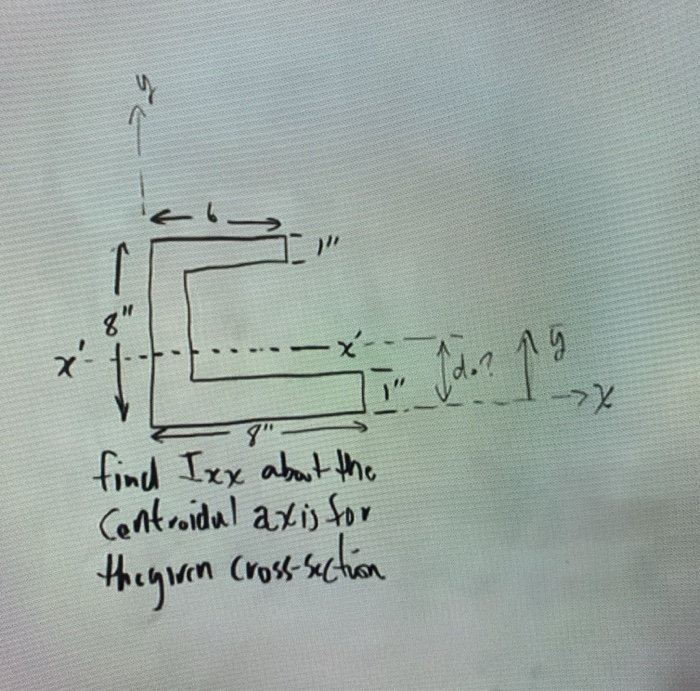 y
6
1"
8"
x'
x'
d.?
ȳ
1"
x
8"
find Ixx about the
Centroidal axis for
the given cross-section